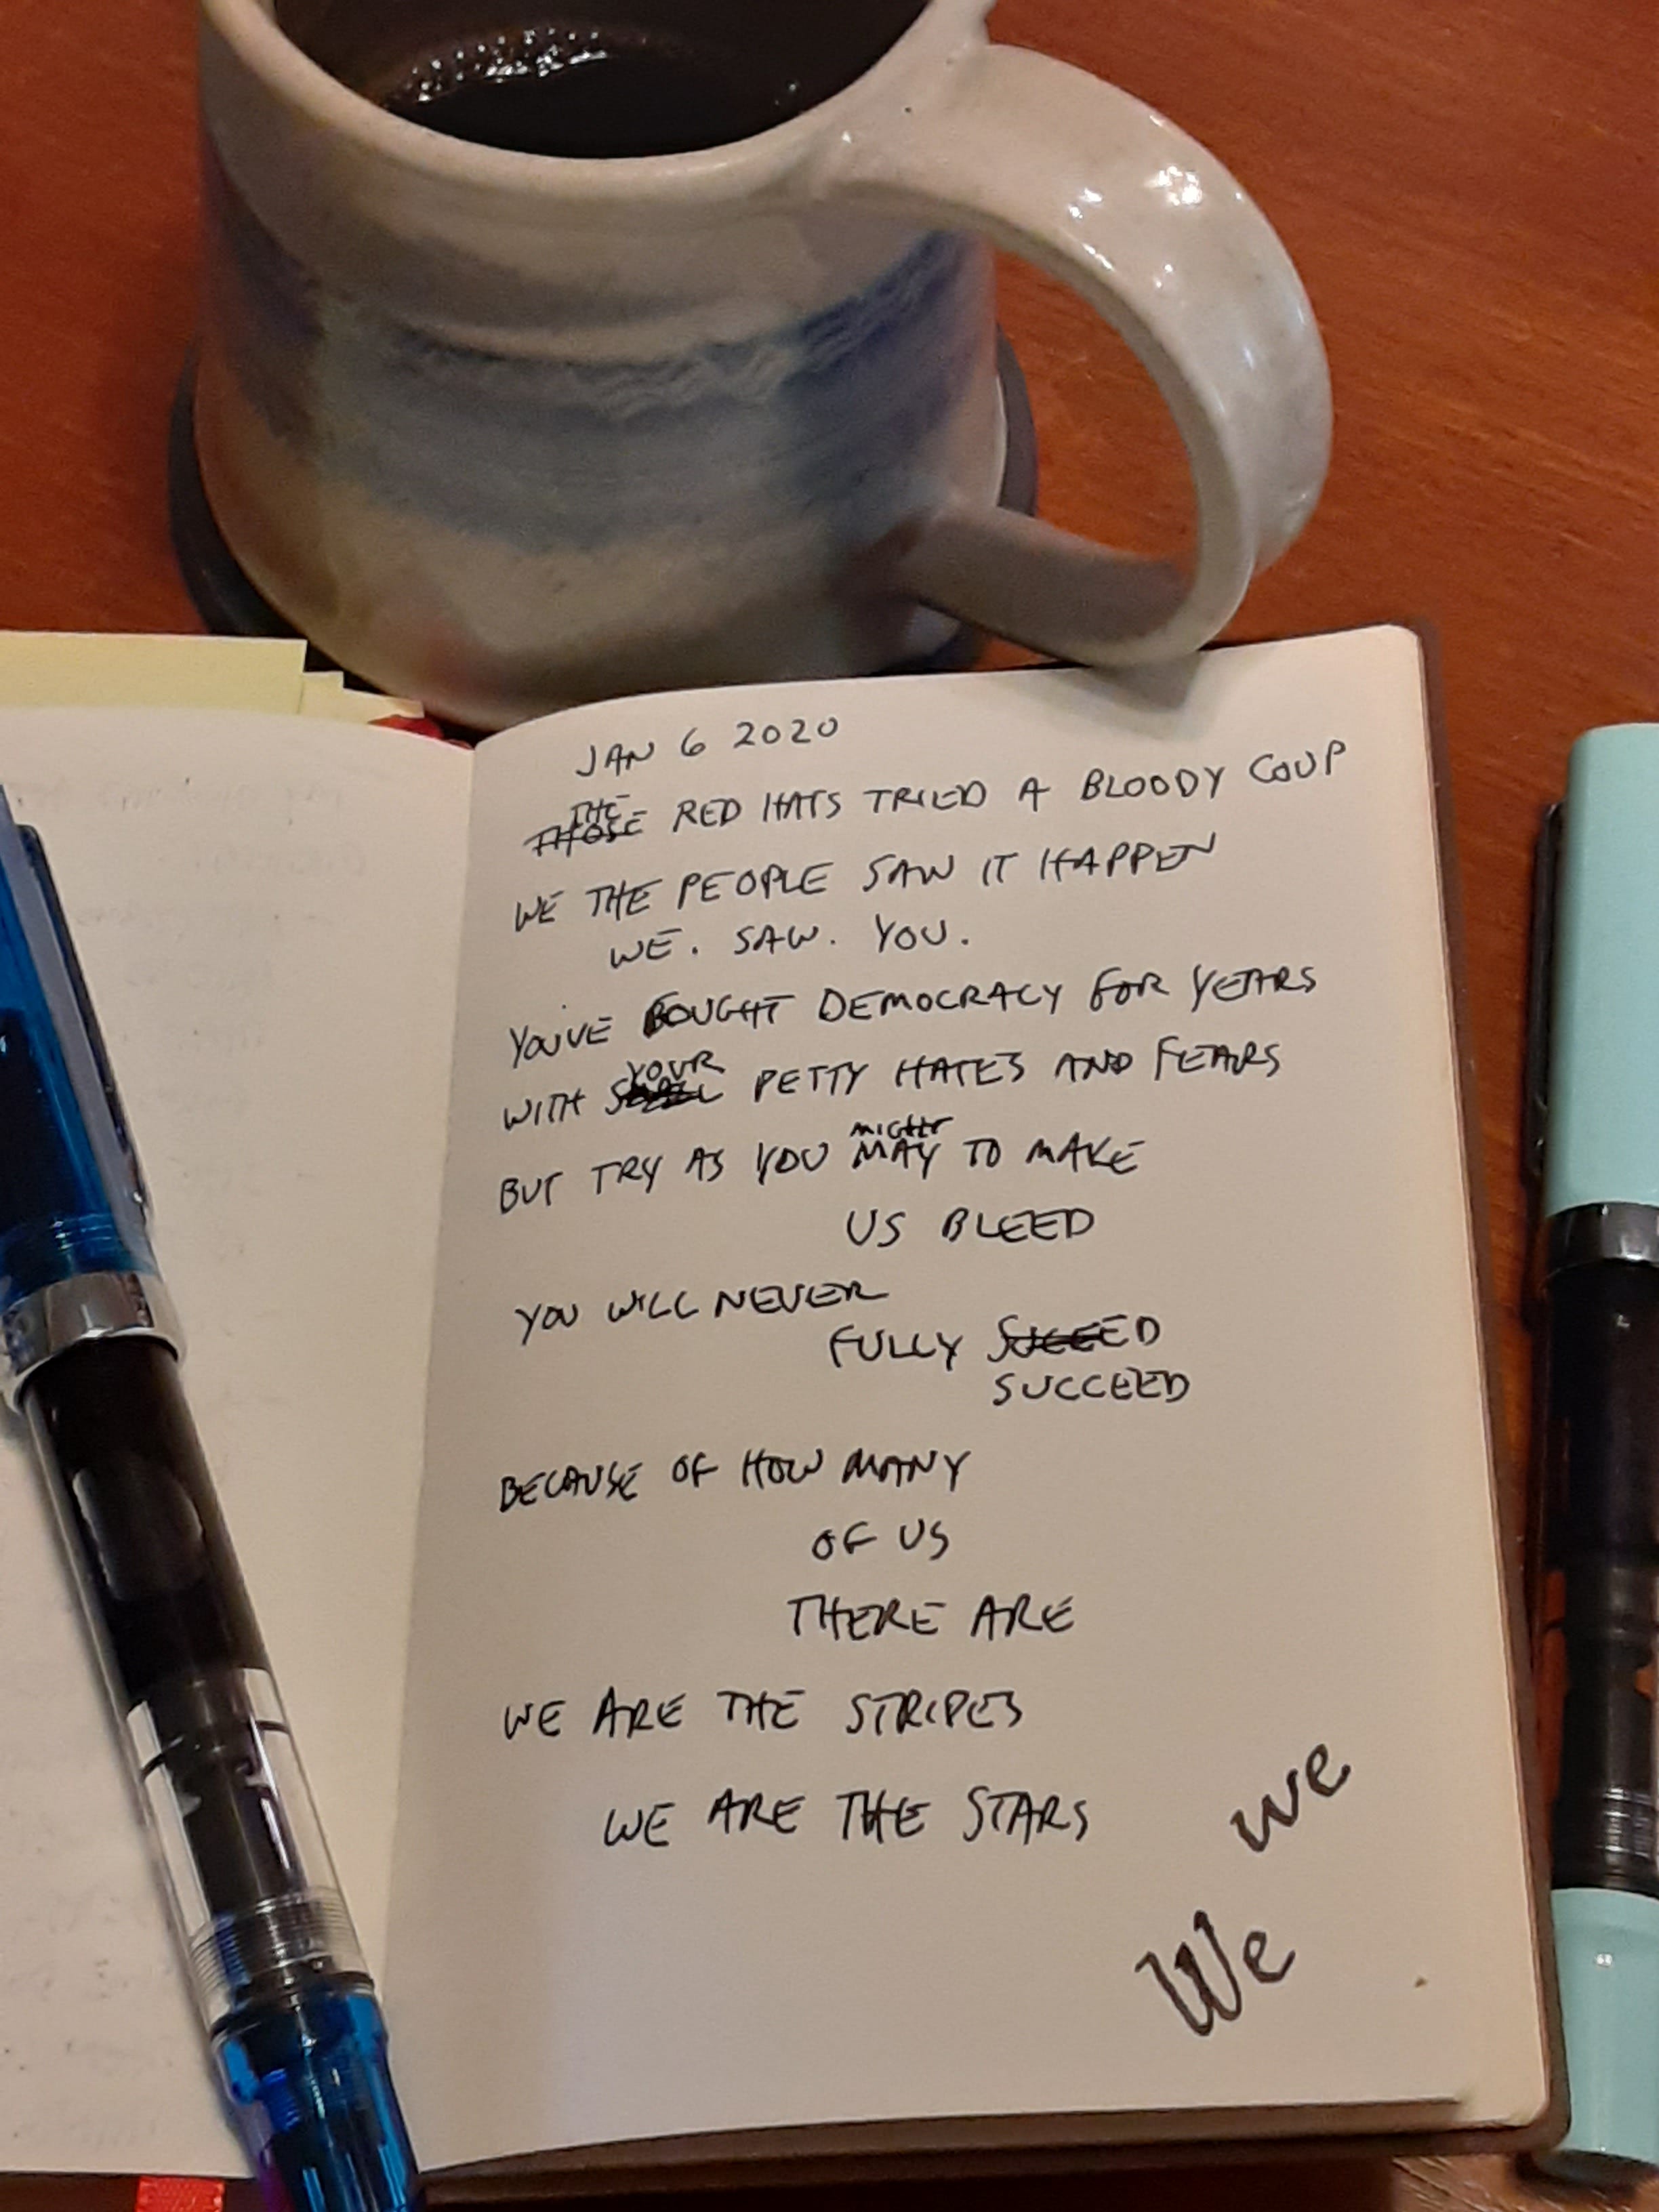 JAN 6 2020
THE
THOSE RED HATS TRIED A BLOODY COUP
WE THE PEOPLE SAW IT HAPPEN
WE. SAW. YOU.
YOU'VE BOUGHT DEMOCRACY FOR YEARS
YOUR
WITH PETTY HATES AND FEARS
MIGHT
BUT TRY AS YOU MAY TO MAKE
US BLEED
YOU WILL NEVER
FULLY SUCEED
SUCCEED
BECAUSE OF HOW MANY
OF US
THERE ARE
WE ARE THE STRIPES
WE ARE THE STARS
we
We